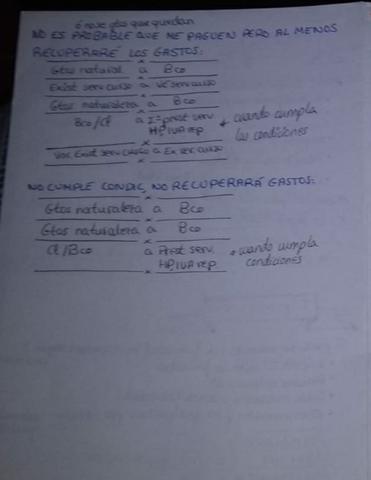 ó no se gtos que quedan
NO ES PROBABLE QUE ME PAGUEN PERO AL MENOS
RECUPERARÉ LOS GASTOS:
x
Gtos natural a Bco
x
Exist serv curso a Vª serv curso
x
Gtos naturaleza a Bco
x
Bco/Cl a I= prest serv
HP, IVA rep
↓ cuando cumpla
las condiciones
x
Var. Exist serv curso a Ex ser. curso
x
NO CUMPLE CONDIC, NO RECUPERARÁ GASTOS:
x
Gtos naturaleza a Bco
x
Gtos naturaleza a Bco
x
Cl/Bco a Prest serv.
HP, IVA rep
cuando cumpla
condiciones
x